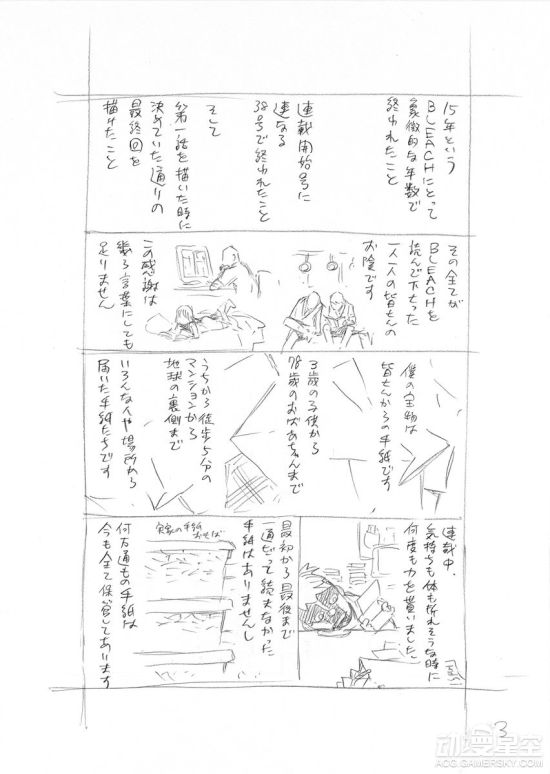 15年という
BLEACHにとって
象徴的な年数で
終われたこと
連載開始号に
連なる
38号で終われたこと
そして
第一話を描いた時に
決めていた通りの
最終回を
描けたこと
その全てが
BLEACHを
読んで下さった
一人一人の皆さんの
お陰です
この感謝は
幾ら言葉にしても
足りません
僕の宝物は
皆さんからの手紙です
3歳の子供から
78歳のおばあちゃんまで
うちから徒歩5分の
マンションから
地球の裏側まで
いろんな人や場所から
届いた手紙たちです
連載中、
気持ちも体も折れそうな時に
何度も力を貰いました
最初から最後まで
一通だって読まなかった
手紙はありませんし
何万通もの手紙は
今も全て保管してあります
3
动漫星空
ACG.GAMERSKY.COM